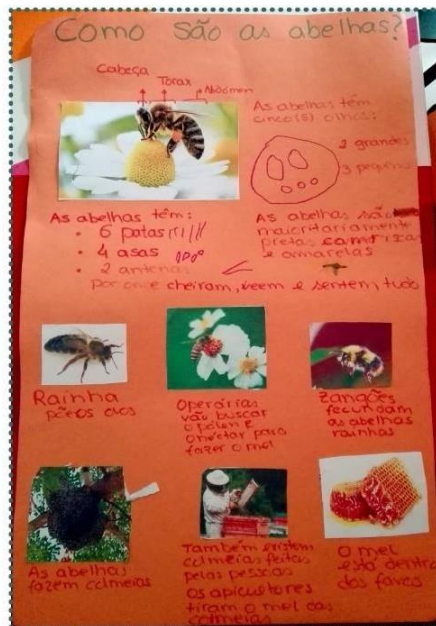 Como são as abelhas?
Cabeça
Torax
Abdómen
As abelhas têm
cinco (5) olhos:
2 grandes
3 pequenos
As abelhas têm:
• 6 patas
• 4 asas
• 2 antenas
por onde cheiram, veem e sentem tudo
As abelhas são
maioritariamente
pretas com riscas
e amarelas
Rainha
põe os ovos
Operárias
vão buscar
o pólen e
o néctar para
fazer o mel
Zangões
fecundam
as abelhas
rainhas
As abelhas
fazem colmeias
Também existem
colmeias feitas
pelas pessoas
os apicultores
tiram o mel das
colmeias
O mel
está dentro
dos favos